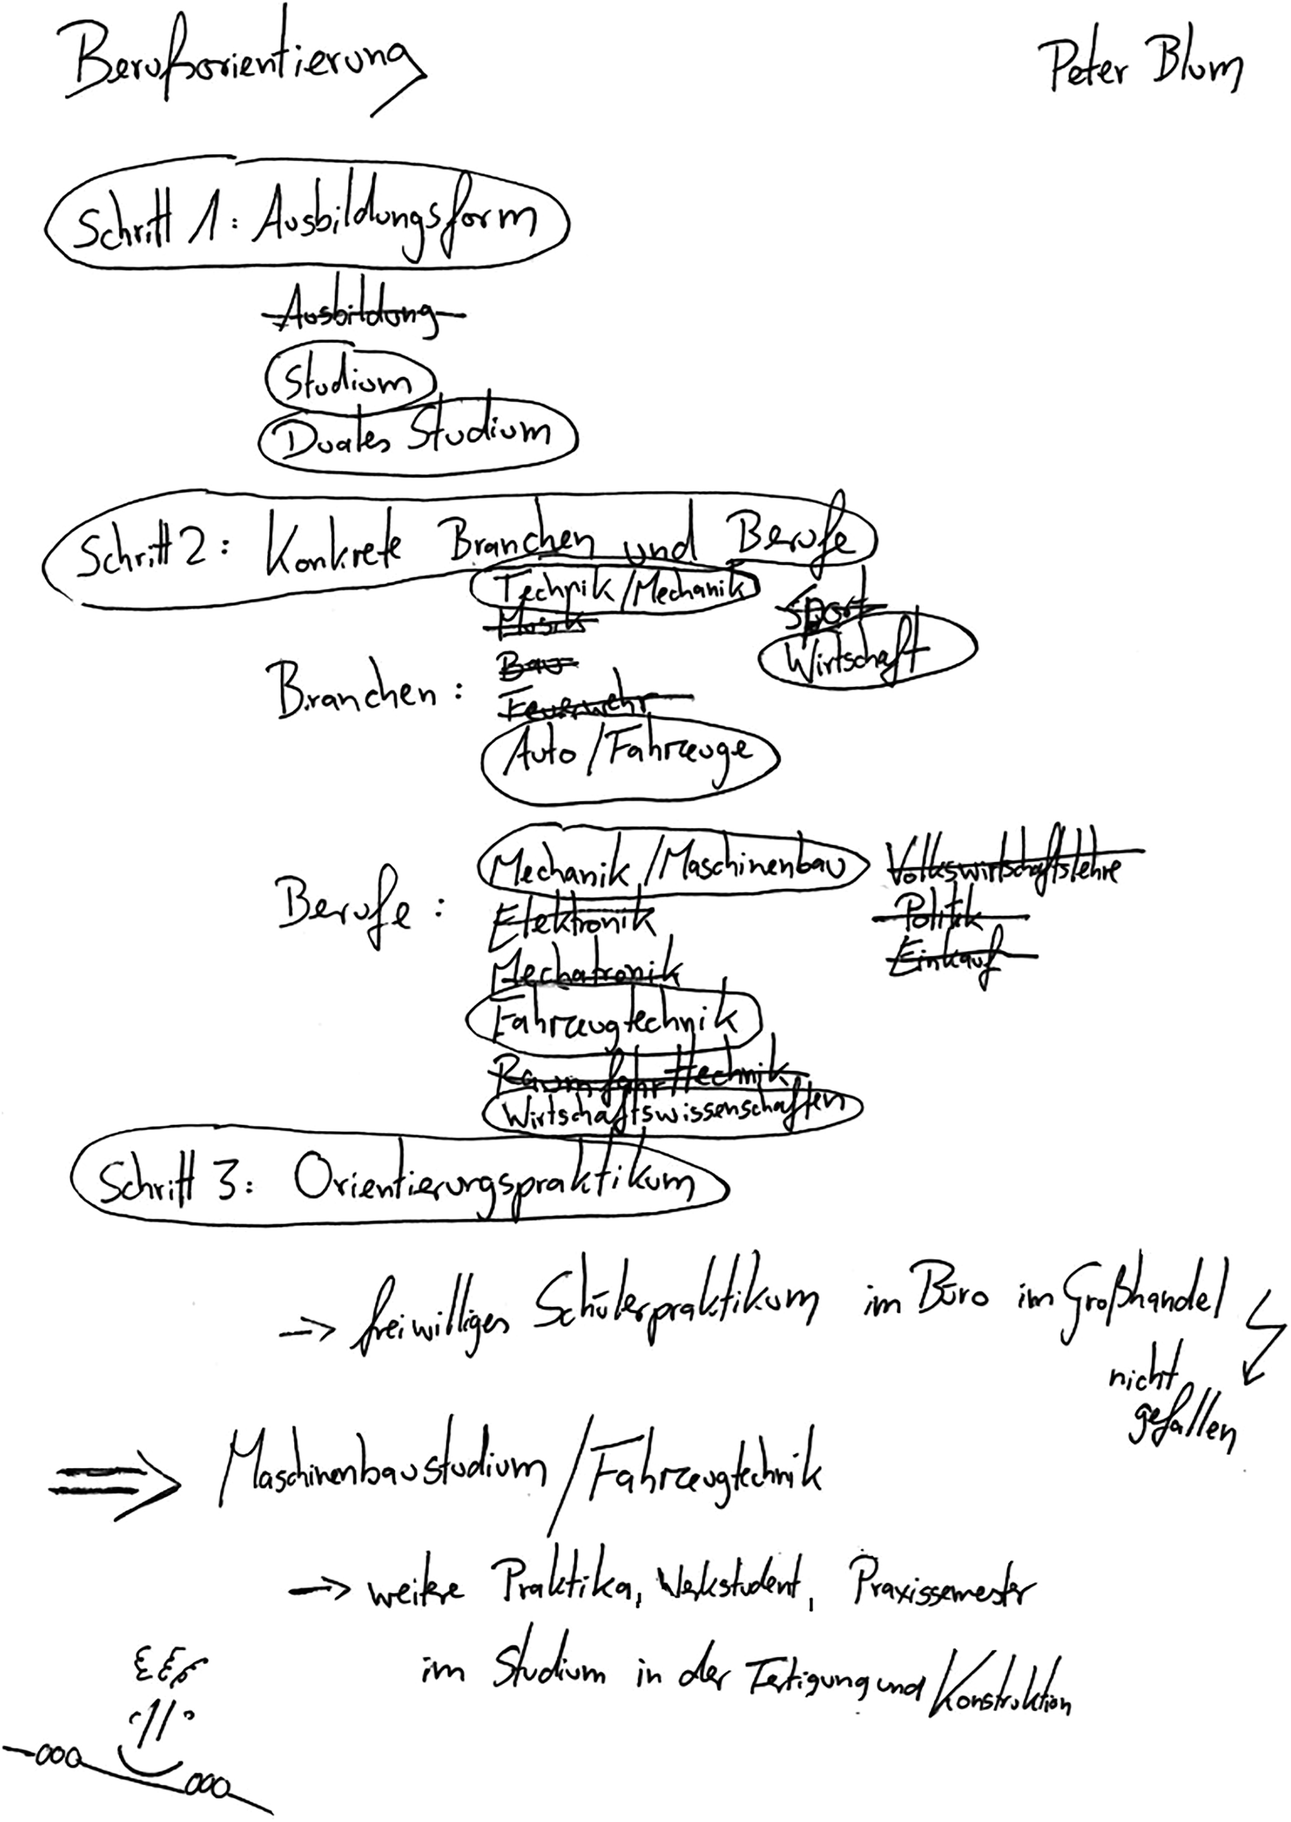 Berufsorientierung Peter Blum
Schritt 1: Ausbildungsform
Ausbildung
Studium
Duales Studium
Schritt 2: Konkrete Branchen und Berufe
Technik/Mechanik Sport
Musik
Wirtschaft
Bau
Branchen:
Feuerwehr
Auto/Fahrzeuge
Mechanik/Maschinenbau Volkswirtschaftslehre
Berufe:
Elektronik Politik
Mechatronik Einkauf
Fahrzeugtechnik
Raumfahrttechnik
Wirtschaftswissenschaften
Schritt 3: Orientierungspraktikum
→ freiwilliges Schülerpraktikum im Büro im Großhandel
nicht
gefallen
⇒ Maschinenbaustudium/Fahrzeugtechnik
→ weitere Praktika, Werkstudent, Praxissemester
im Studium in der Fertigung und Konstruktion